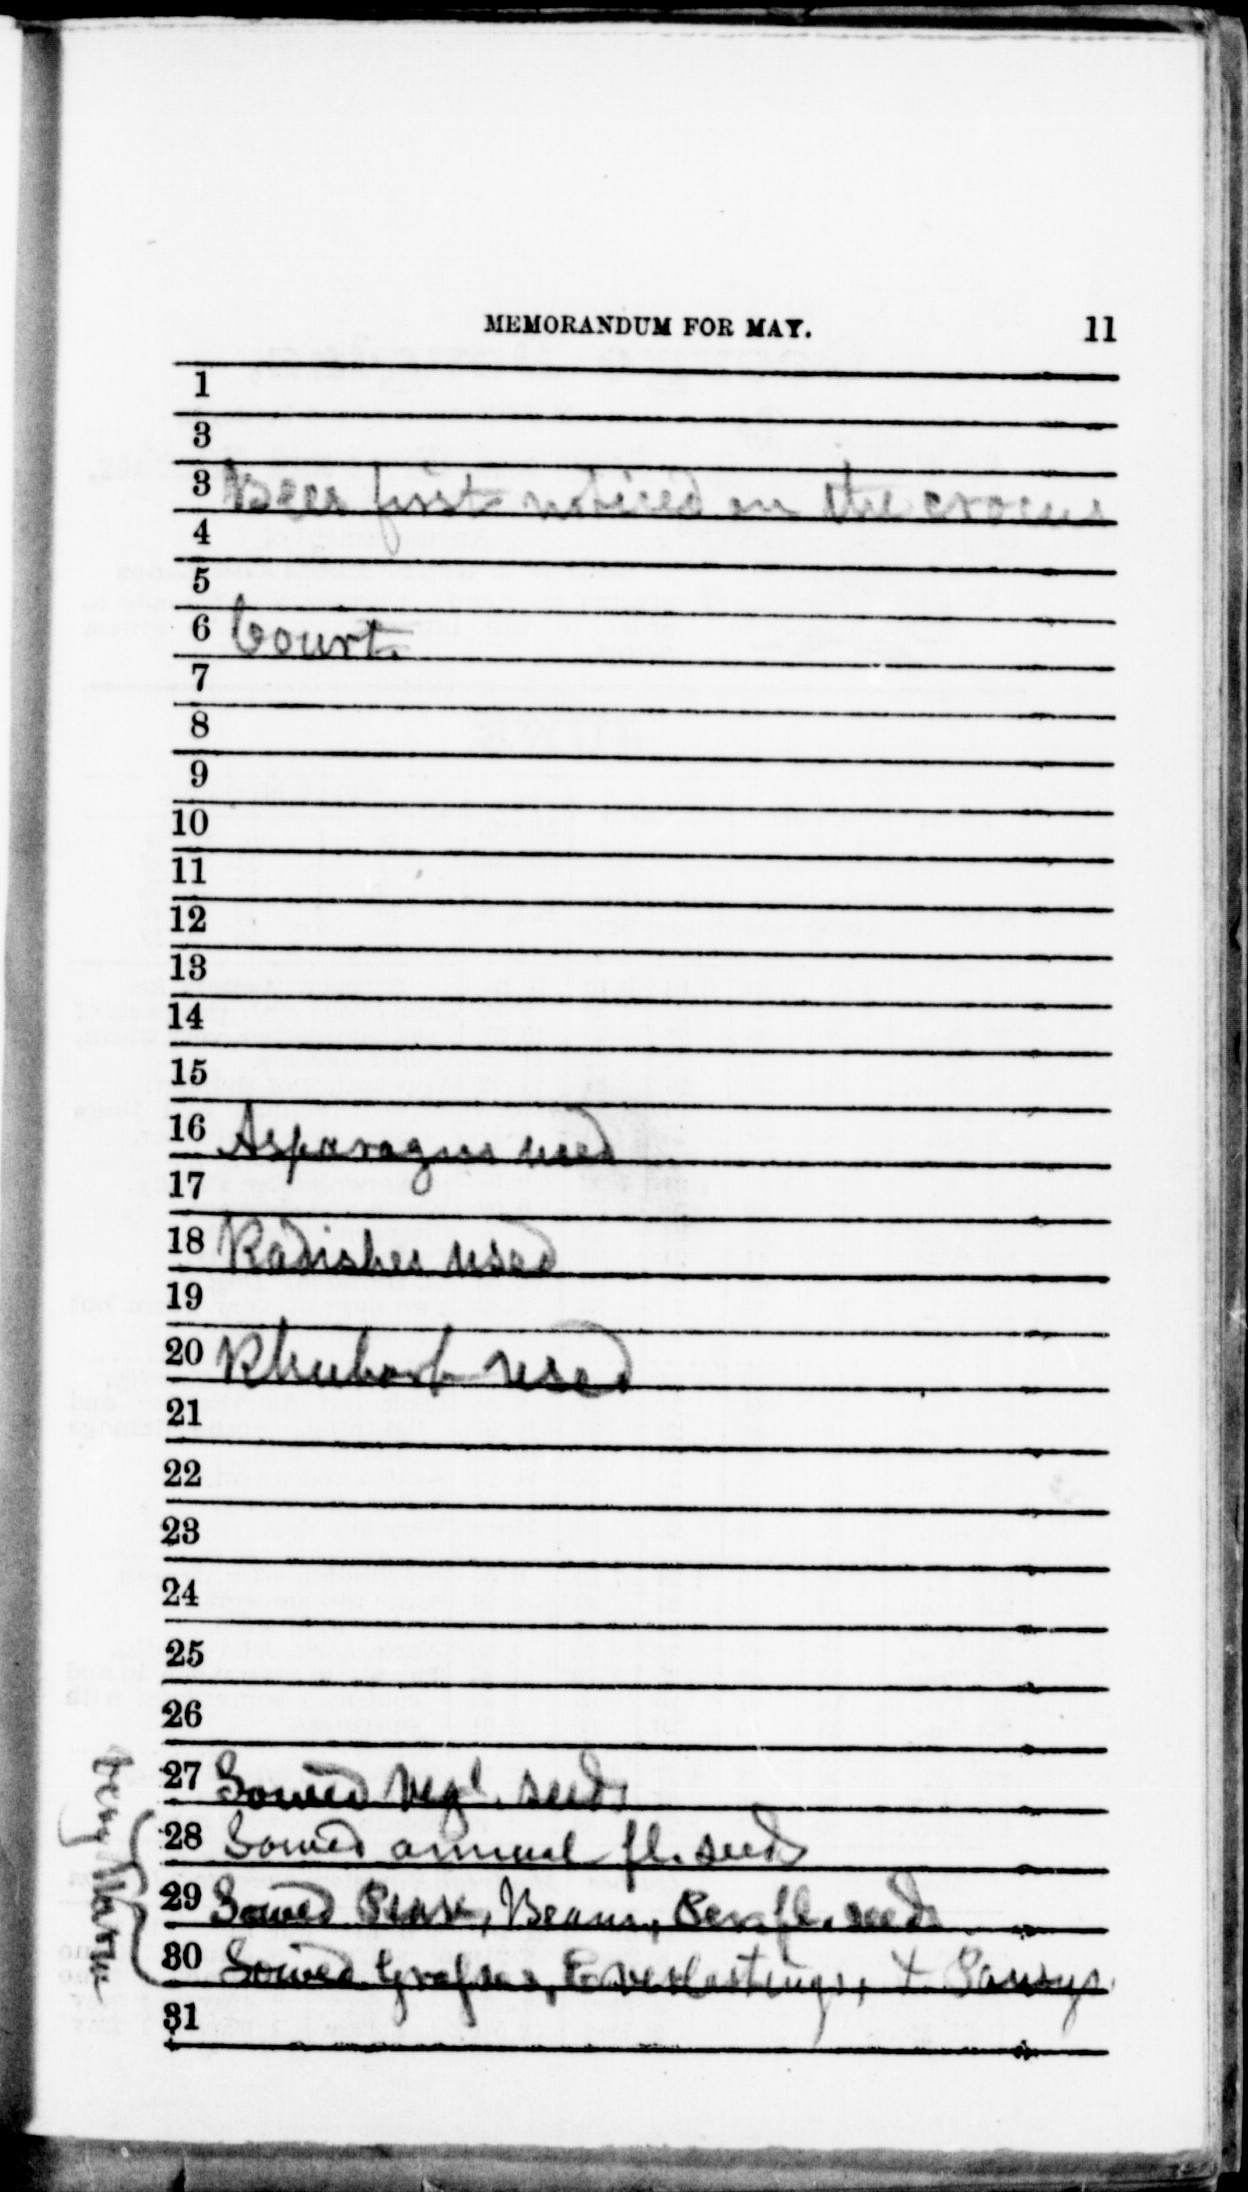 MEMORANDUM FOR MAY. 11
1
3
3 Bees first noticed on the crocus
4
5
6 Court.
7
8
9
10
11
12
13
14
15
16 Asparagus used
17
18 Radishes used
19
20 Rhubarb used
21
22
23
24
25
26
27 Sowed vegt. seeds
28 Sowed annual fl. seeds
29 Sowed Peas, Beans, Per. fl. seeds
30 Sowed Grasses, Everlastings, & Pansys.
31
very Warm